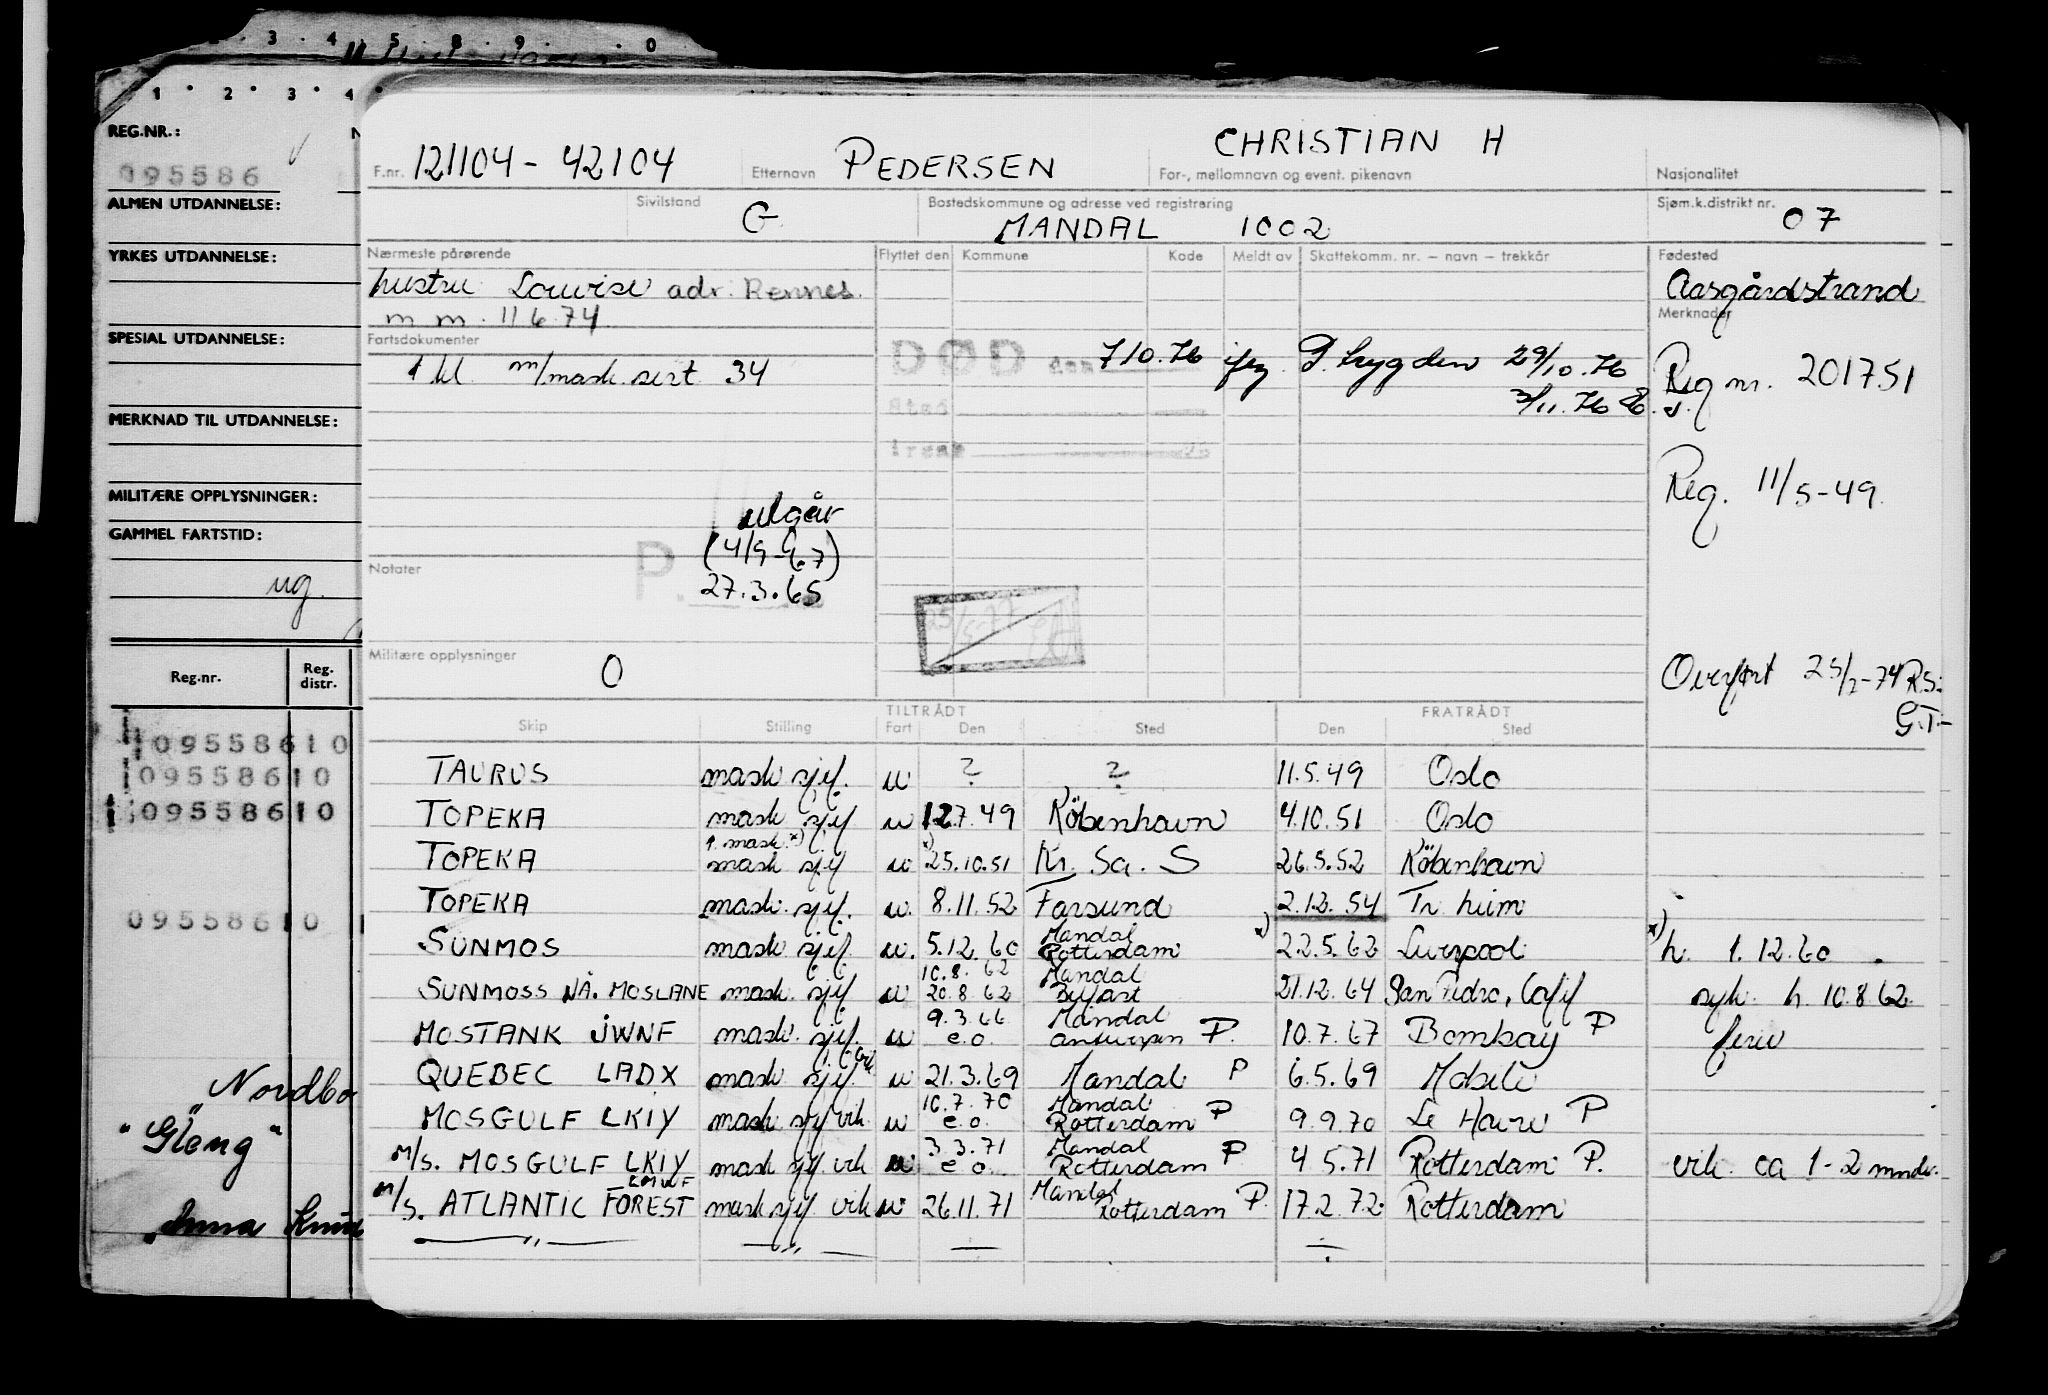 3 . 4 . 5 . 8 . 9 . . 0
1 . 2 . 3 . 4 .
REG.NR.:
095586
ALMEN UTDANNELSE:
YRKES UTDANNELSE:
SPESIAL UTDANNELSE:
MERKNAD TIL UTDANNELSE:
MILITÆRE OPPLYSNINGER:
GAMMEL FARTSTID:
ug.
Reg.nr. Reg. distr.
09558610
09558610
09558610
09558610
Nordbo
"Gleng"
Anna Knud
F.nr. 121104-42104 Etternavn PEDERSEN CHRISTIAN H
For-, mellomnavn og event. pikenavn Nasjonalitet
Sivilstand G Bostedskommune og adresse ved registrering MANDAL 1002 Sjøm.k.distrikt nr. 07
Nærmeste pårørende Flyttet den Kommune Kode Meldt av Skattekomm. nr. – navn – trekkår Fødested
hustru Louise adr. Rennes. Aasgårdstrand
m m. 11 6.74 Merknader
Fartsdokumenter
1 kl m/mask.sert 34 DØD den 7/10.76 P. trygden 29/10.76 Reg nr. 201751
3/11.76
Sted
Reg. 11/5-49.
utgår
(4/9-67)
Notater P. 27.3.65
25/5-77
Militære opplysninger O Overført 25/2-74 R.S.
G.T.-
TILTRÅDT FRATRÅDT
Skip Stilling Fart Den Sted Den Sted
TAURUS mask sjef. u ? ? 11.5.49 Oslo
TOPEKA mask sjef u 12.7.49 København 4.10.51 Oslo
1. mask x)
TOPEKA mask sjef u x) 25.10.51 Kr. Sa. S 26.5.52 København
TOPEKA mask. sjef. u. 8.11.52 Farsund 2.12.54 Tr. heim
SUNMOS mask sjef. u. 5.12.60 Mandal Rotterdam x) 22.5.62 Liverpool x) h. 1.12.60
SUNMOSS NÅ. MOSLANE mask. sjef u 10.8.62 20.8.62 Mandal Belfast 21.12.64 San Pedro, Calif syk. h. 10.8.62
MOSTANK JWNF mask. sjef. u 9.3.66 e.o. Mandal Antwerpen P. 10.7.67 Bombay P ferie
QUEBEC LADX mask sjef. vik u 21.3.69 Mandal P 6.5.69 Mobile
MOSGULF LKIY mask sjef vik u 10.7.70 e.o. Mandal Rotterdam P 9.9.70 Le Havre P
M/S. MOSGULF LKIY mask sjef vik u 3.3.71 e o. Mandal Rotterdam P 4 5.71 Rotterdam P. vik. ca 1-2 mndr.
M/S. ATLANTIC FOREST mask sjef vik u 26.11.71 Mandal Rotterdam P. 17.2.72. Rotterdam
—— " —— — " —